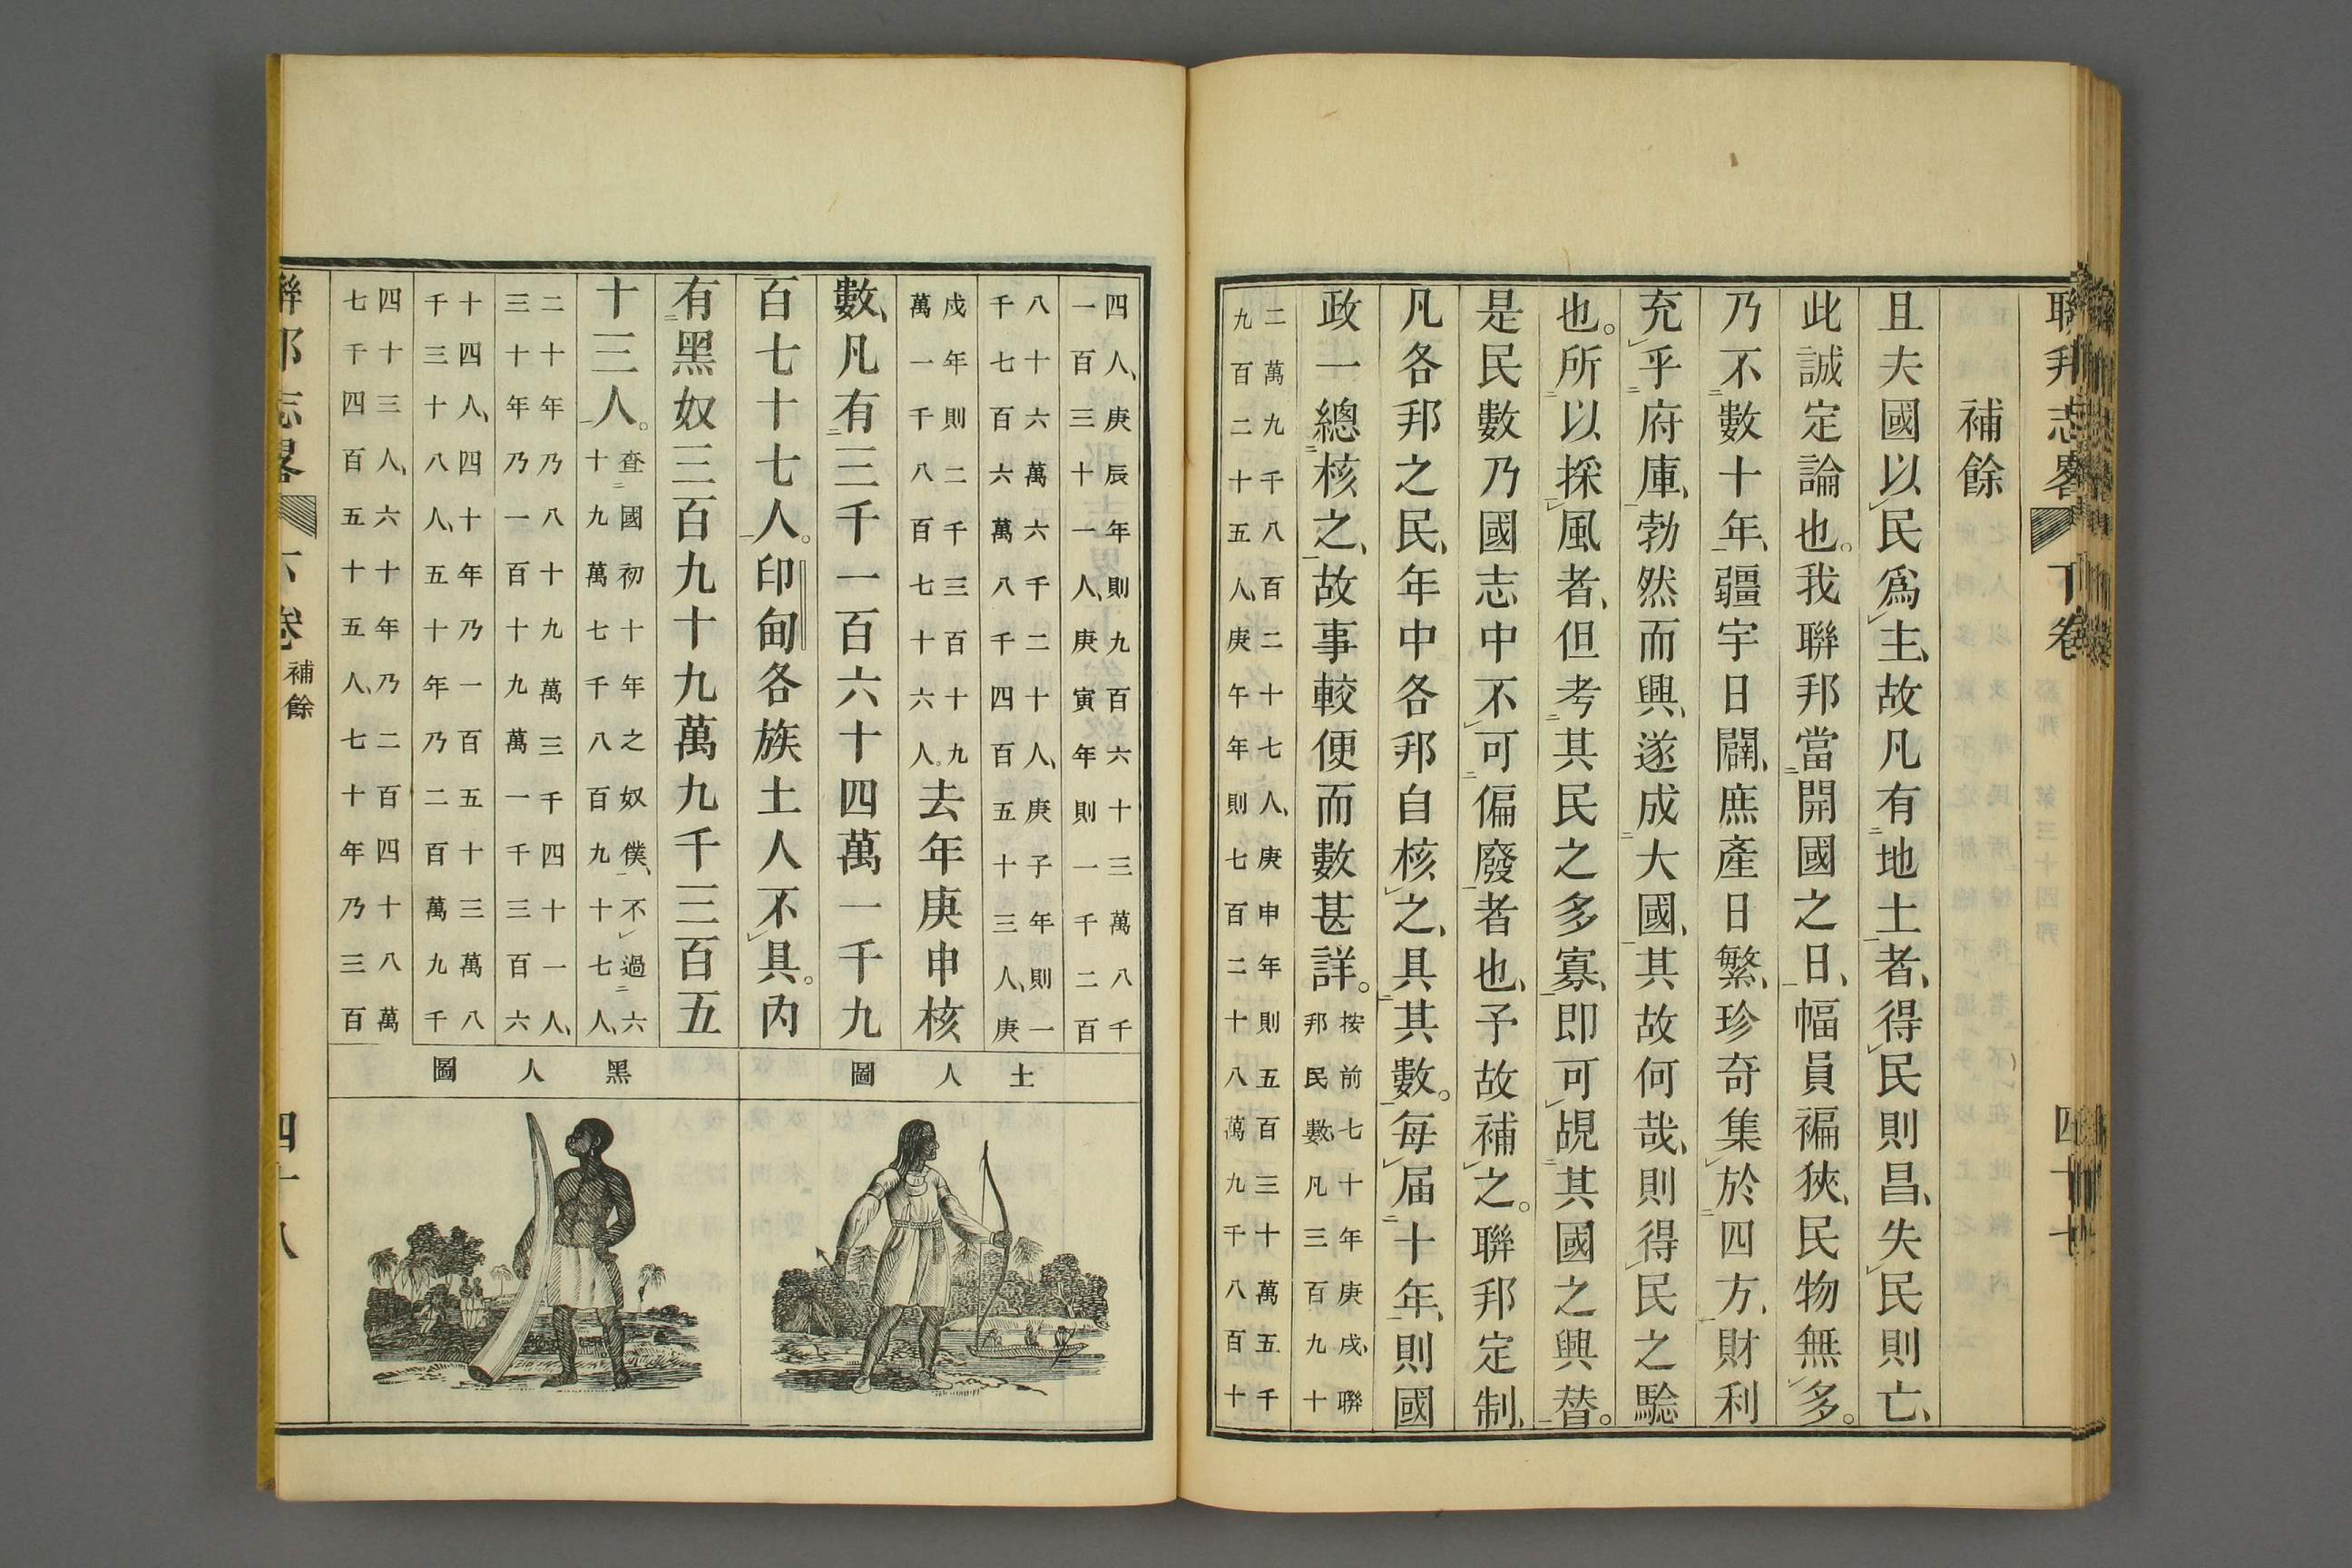 聯邦志畧 下卷 四十七
補餘
且夫國以民爲主、故凡有地土者、得民則昌、失民則亡、
此誠定論也。我聯邦當開國之日、幅員褊狹、民物無多。
乃不數十年、疆宇日闢、庶產日繁、珍奇集於四方、財利
充乎府庫、勃然而興、遂成大國、其故何哉、則得民之驗
也。所以採風者、但考其民之多寡、即可覘其國之興替。
是民數乃國志中不可偏廢者也、予故補之。聯邦定制、
凡各邦之民、年中各邦自核之、具其數。每届十年、則國
政一總核之、故事較便而數甚詳。
按前七十年庚戌、聯
邦民數、凡三百九十
二萬九千八百二十七人、庚申年則五百三十萬五千
九百二十五人、庚午年則七百二十八萬九千八百十
四人、庚辰年則九百六十三萬八千
一百三十一人、庚寅年則一千二百
八十六萬六千二十人、庚子年則一
千七百六萬八千四百五十三人、庚
戍年則二千三百十九
萬一千八百七十六人。
去年庚申核
數、凡有三千一百六十四萬一千九
百七十七人。印甸各族土人不具。內
有黑奴三百九十九萬九千三百五
十三人。
查國初十年之奴僕、不過六
十九萬七千八百九十七人、
二十年乃八十九萬三千四十一人、
三十年乃一百十九萬一千三百六
十四人、四十年乃一百五十三萬八
千三十八人、五十年乃二百萬九千
四十三人、六十年乃二百四十八萬
七千四百五十五人、七十年乃三百
土人圖
黑人圖
補餘
四十八